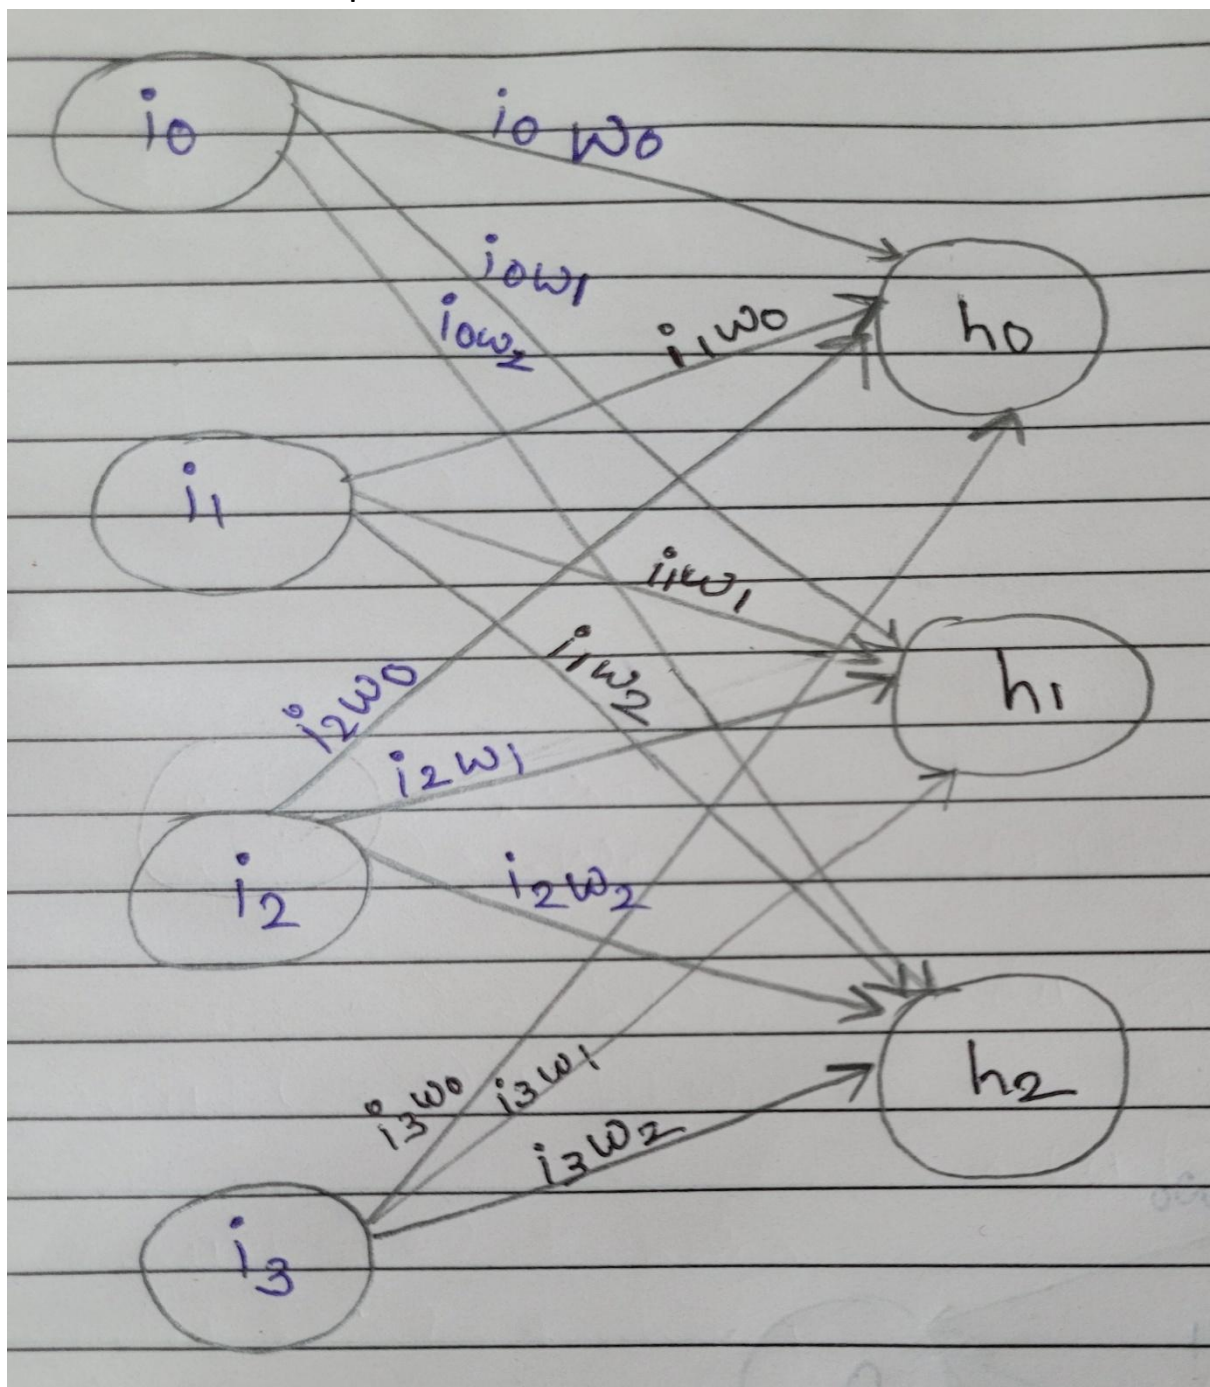 i0
i0 w0
i0w1
i0w2
i1w0
h0
i1
i1w1
i1w2
h1
i2w0
i2w1
i2
i2w2
h2
i3w0
i3w1
i3w2
i3